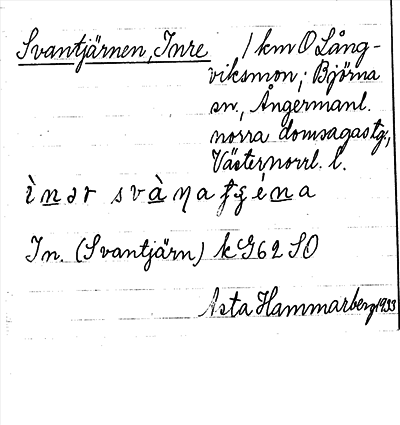 Svantjärnen, Inre 1 km O Lång-
viksmon; Björna
sn, Ångermanl.
norra domsagas tg.,
Västernorrl. l.
In. (Svantjärn) k G62 SO
Asta Hammarberg 1933